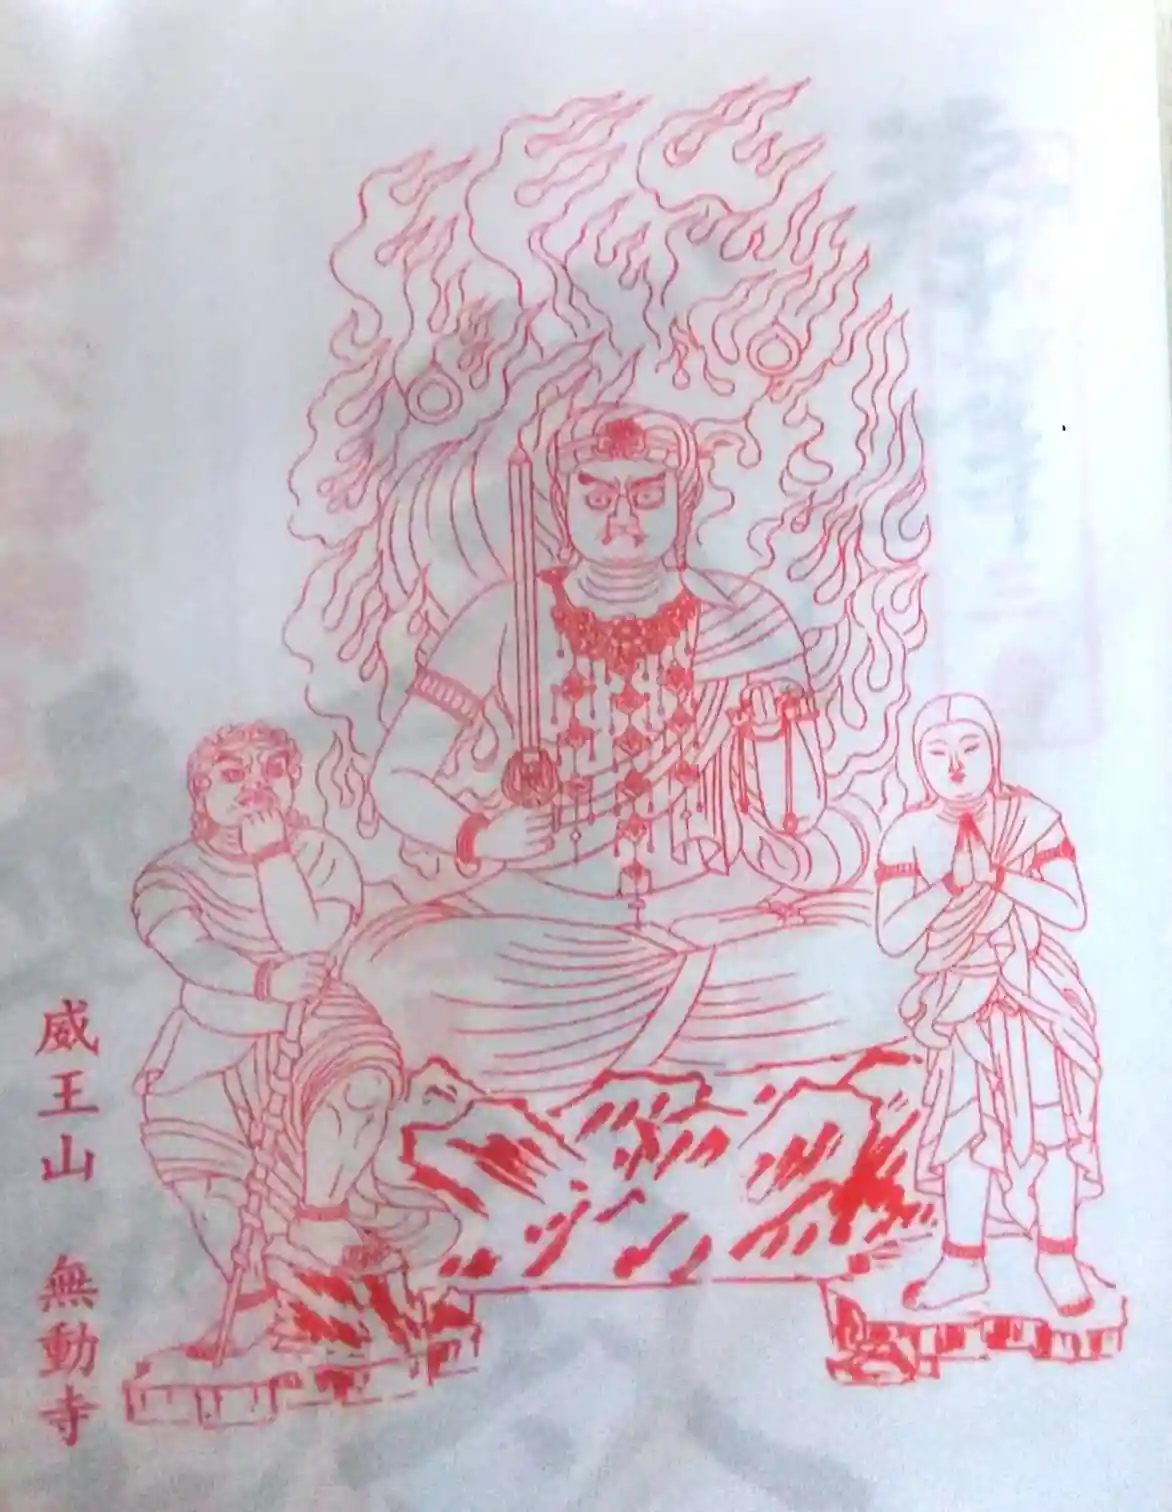 威王山 無動寺